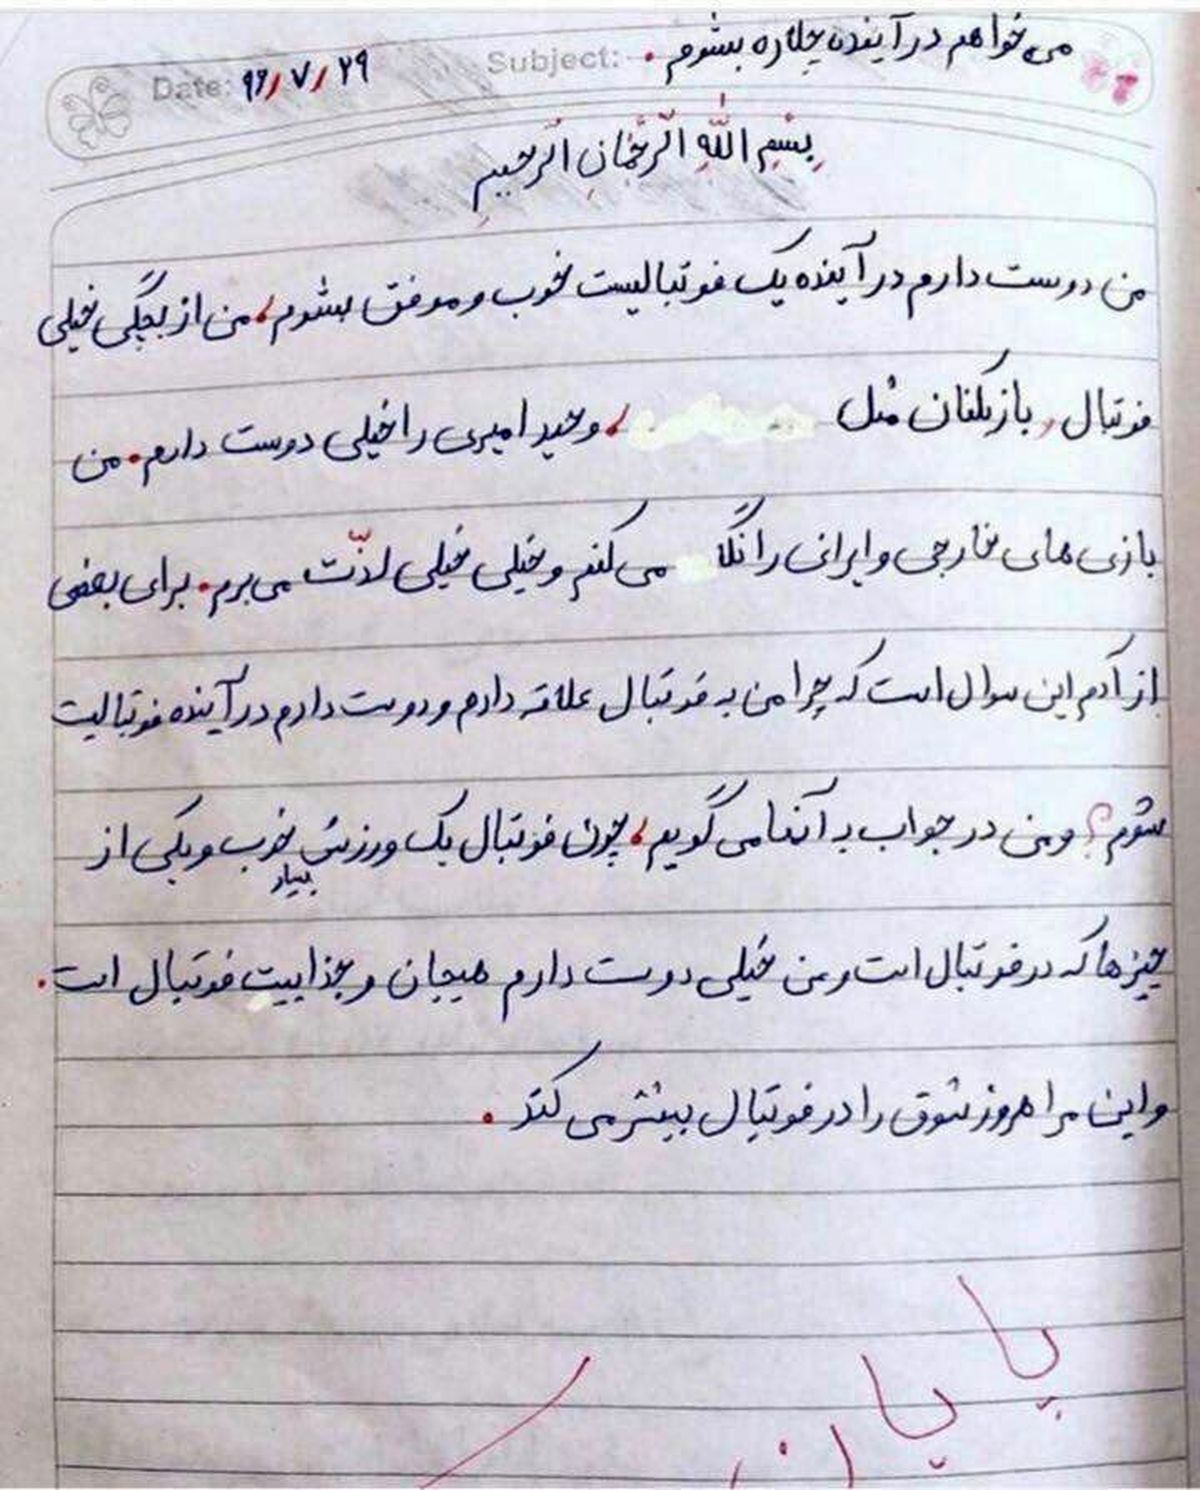 می خواهم در آینده چکاره بشوم.
Subject:
Date: ۹۶/۷/۲۹
بِسْمِ اللّٰهِ الَرَّحْمٰانِ الَرَّحیمِ
من دوست دارم در آینده یک فوتبالیست خوب و موفق بشوم، من از بچگی خیلی
فوتبال، بازیکنان مثل ، وحید امیری را خیلی دوست دارم. من
بازی های خارجی و ایرانی را نگا می کنم و خیلی خیلی لذّت می برم. برای بعضی
از آدم این سوال است که چرا من به فوتبال علاقه دارم و دوست دارم در آینده فوتبالیت
شوم؟ و من در جواب به آنها می گویم، چون فوتبال یک ورزش خوب و یکی از
بسیار
چیزها که در فوتبال است و من خیلی دوست دارم هیجان و جذابیت فوتبال است.
و این مرا هروز شوق را در فوتبال بیشتر می کند.
پایان